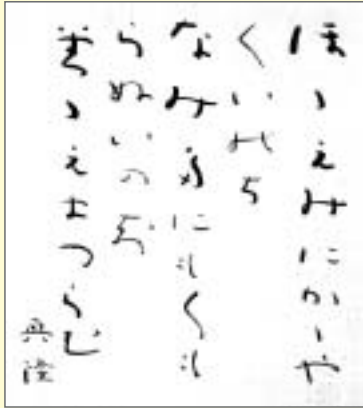 ほゝえみにかゝや
くいのち
なみ多にもくも
らぬいのち
ゝえまつらむ